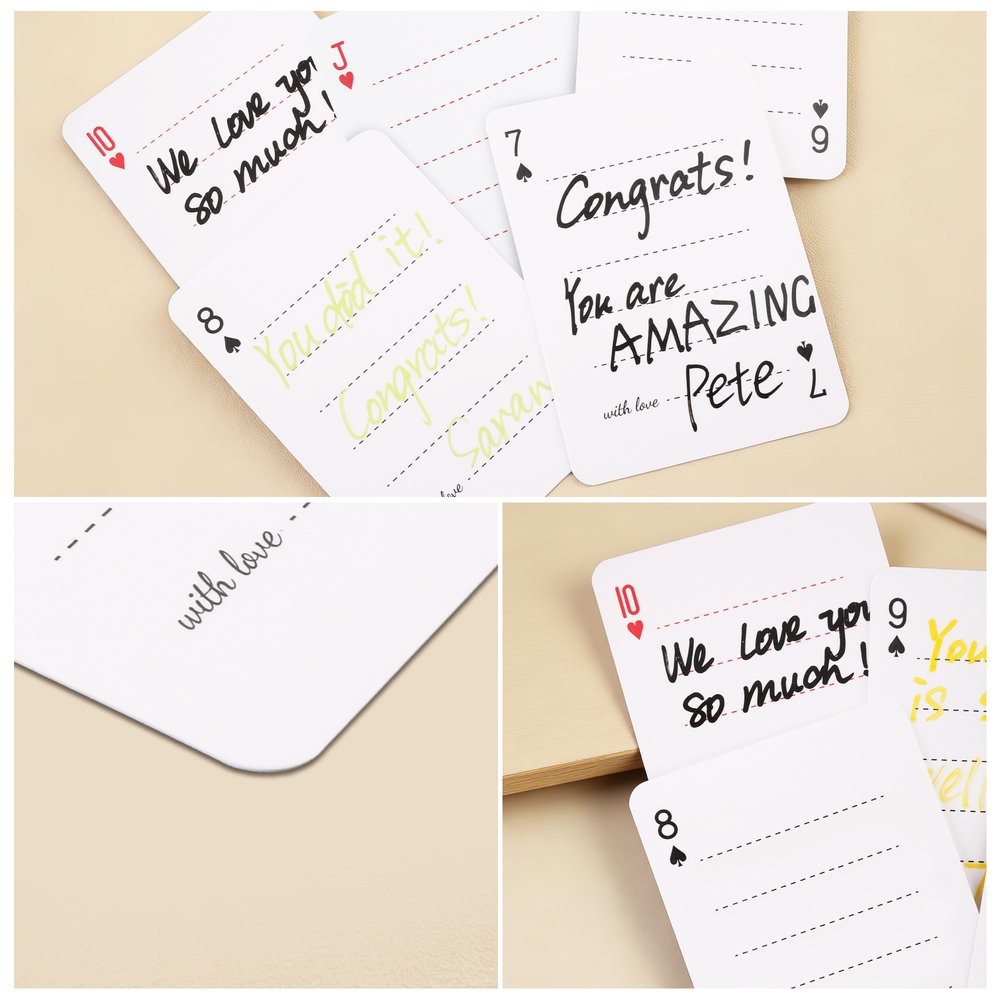 10
We Love you
so much!
J
6
8
You did it!
Congrats!
Sarah
love
7
Congrats!
You are
AMAZING
with love Pete
7
with love
10
We Love you
so much!
9
You
is s
well
8